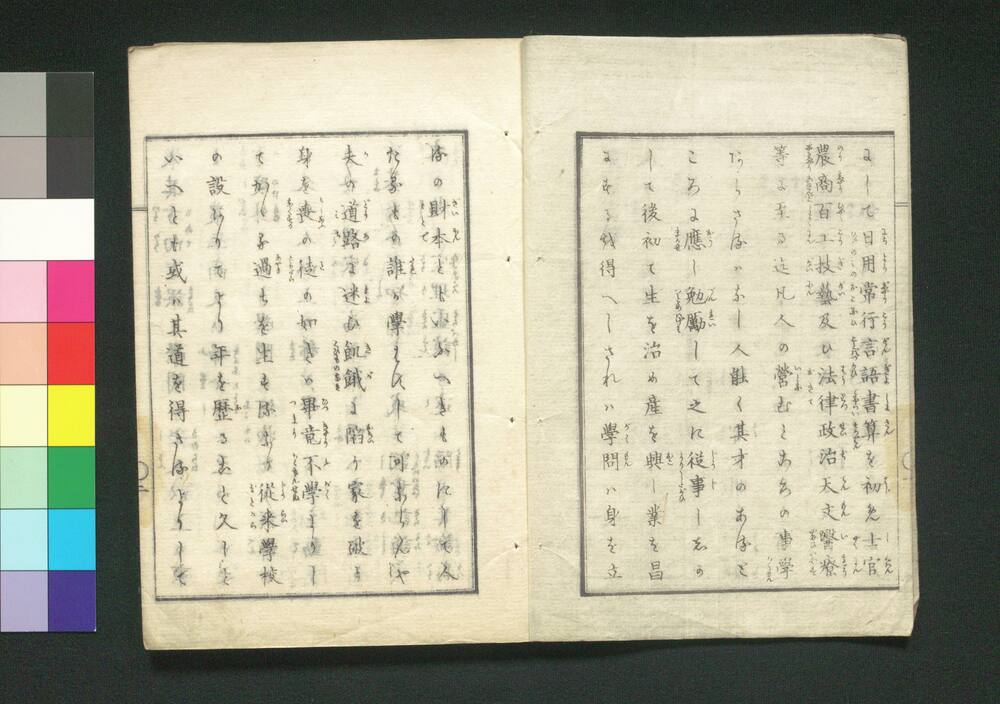 にして日用常行言語書算を初め士官
農商百工技藝及ひ法律政治天文醫療
等に至る迄凡人の營むところの事學
あらさるハなし人能く其才のあると
ころに應し勉勵して之に從事ししか
して後初て生を治め産を興し業を昌
にするを得へしされハ學問ハ身を立
るの財本ともいふへきものにして人
たるもの誰か學はすして可ならんや
夫の道路に迷ひ飢餓に陷り家を破り
身を喪の徒の如きは畢竟不學よりし
てかゝる過ちを生するなり從来學校
の設ありてより年を歴ること久しと
いへとも或ハ其道を得さるよりして